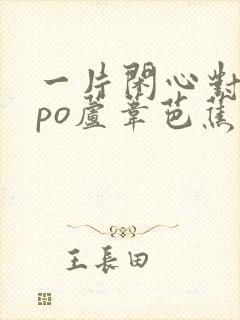 一片閑心對
po蘆葦芭蕉
王長田